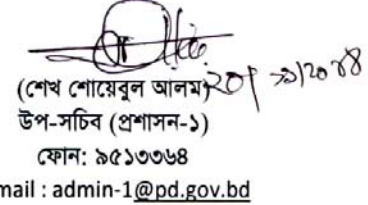 (শেখ শোয়েবুল আলম)
উপ-সচিব (প্রশাসন-১)
ফোন: ৯৫১৩৩৬৪
mail : admin-1@pd.gov.bd